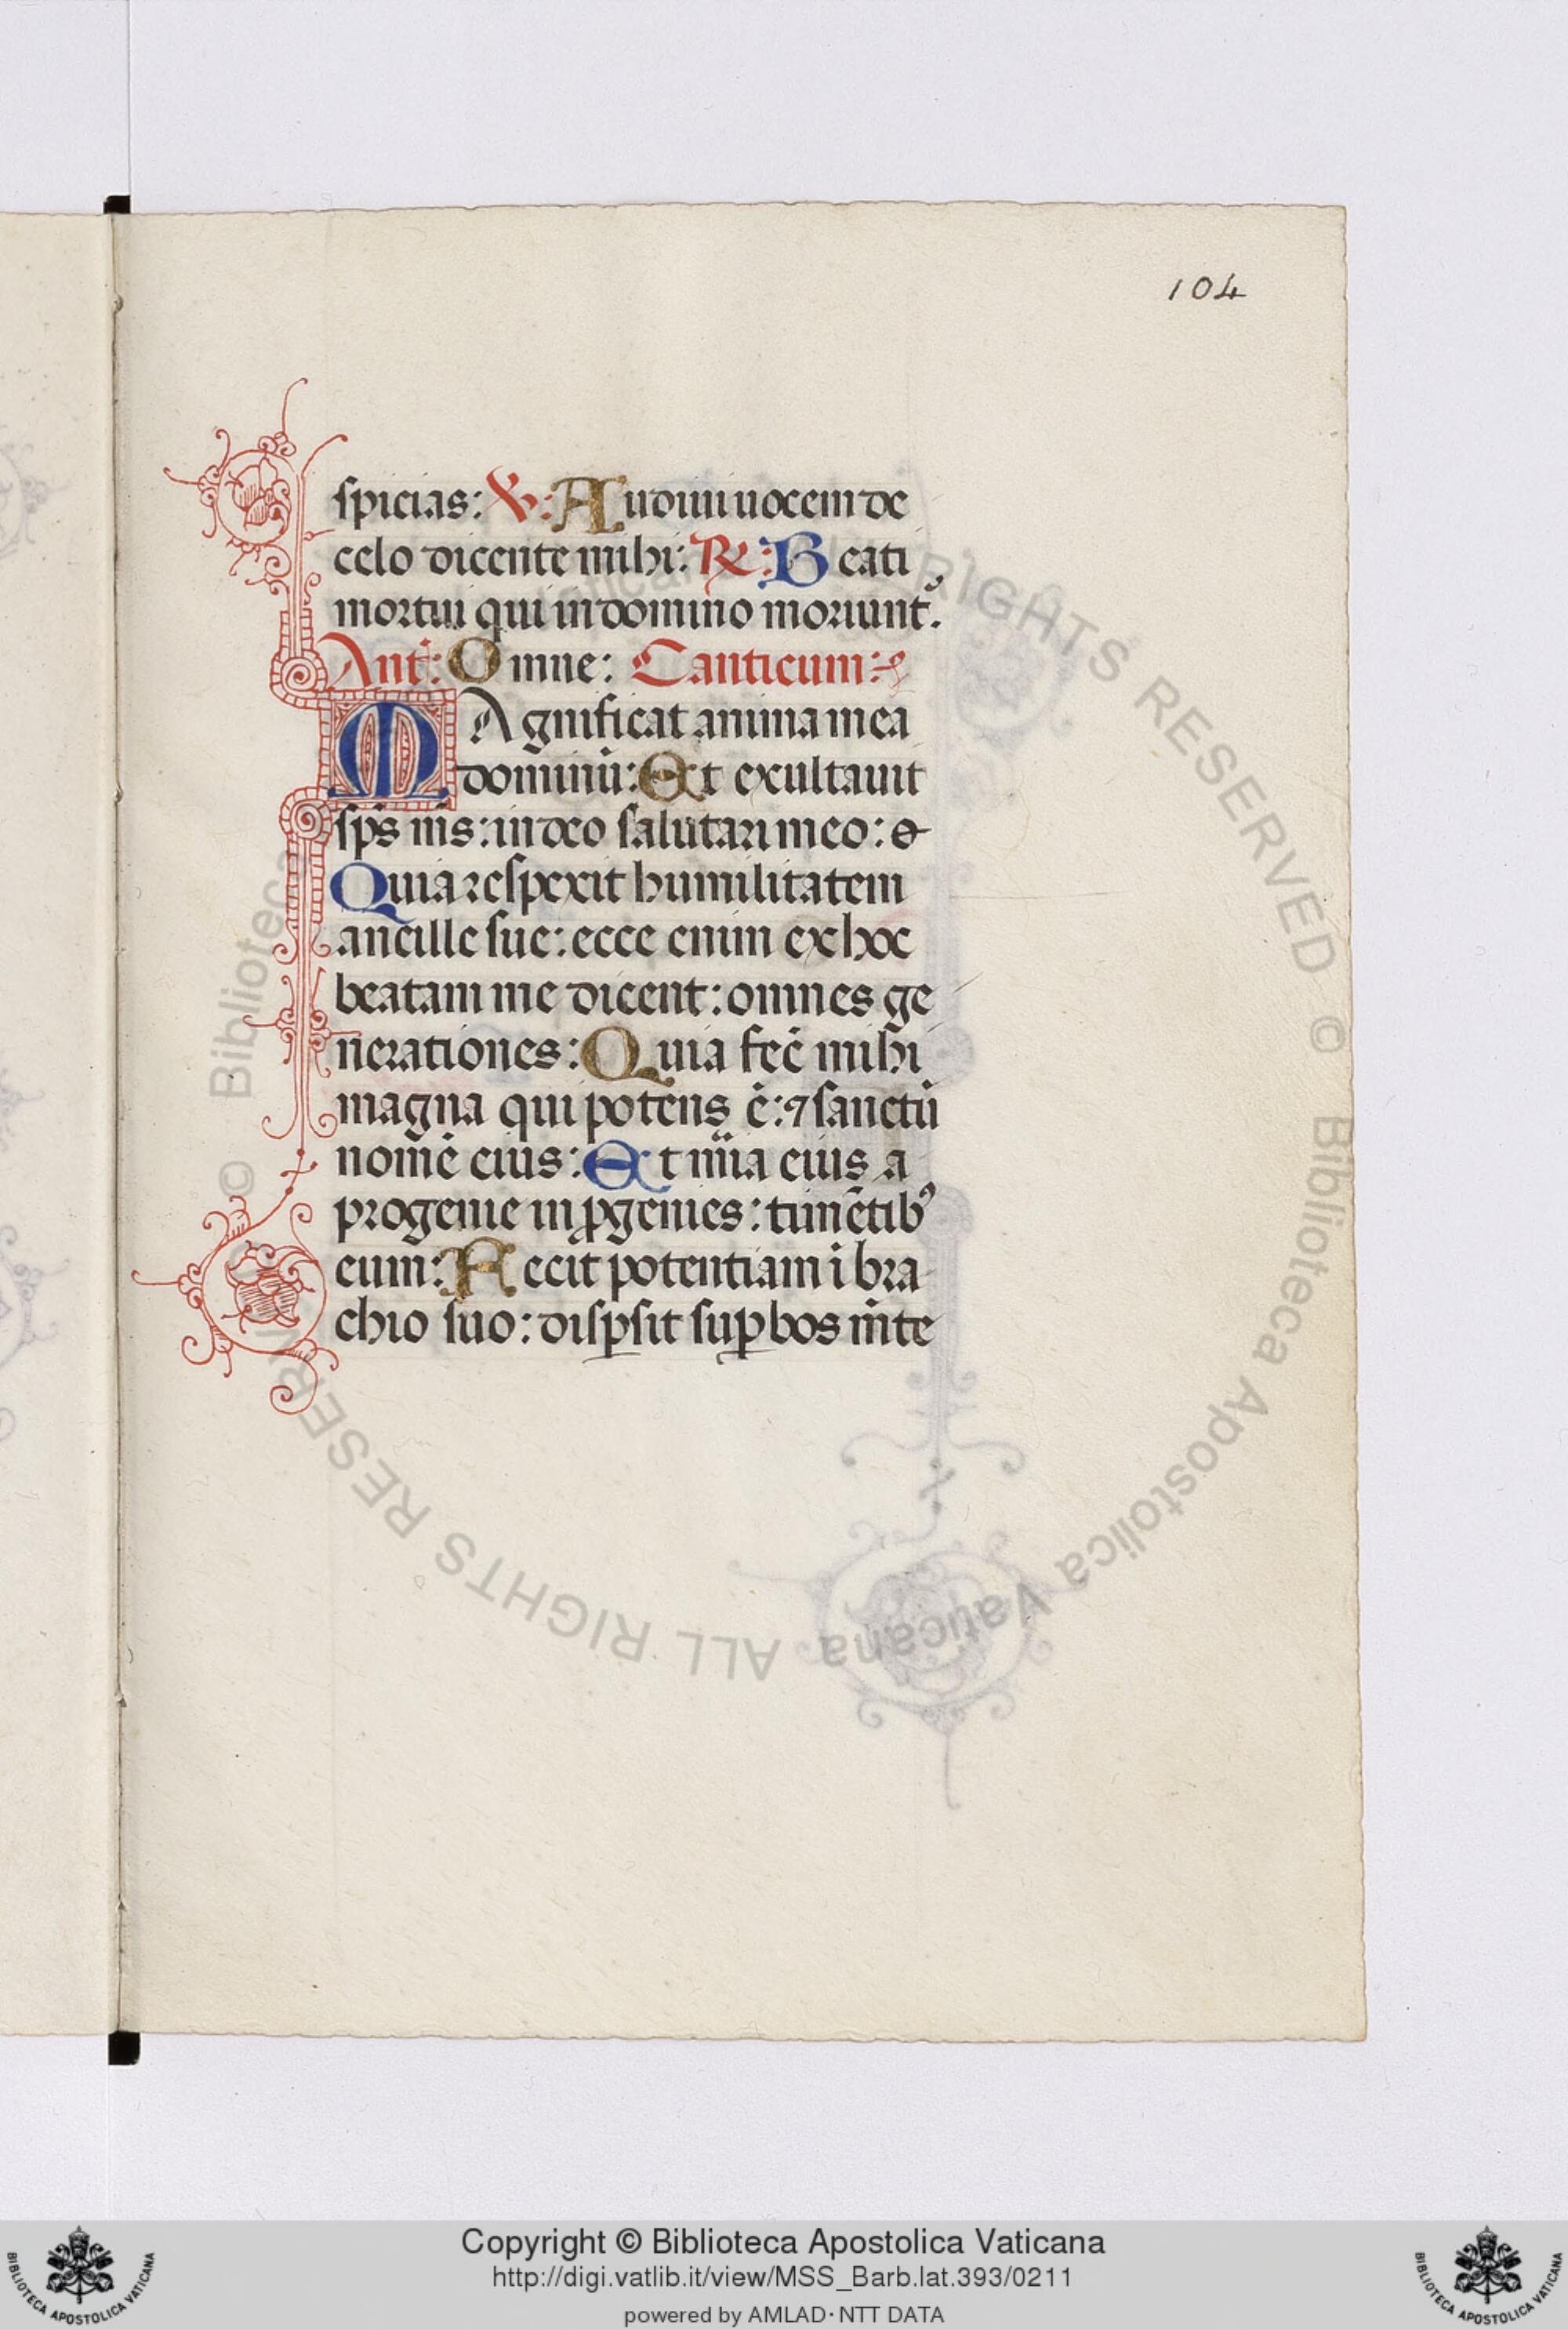 104
spicias: ℣: Audiui uocem de
celo dicente mihi: ℟: Beati
mortui qui in domino moriunt᷑.
Ant̃: Omne: Canticum:
MAgnificat anima mea
dominū: Et exultauit
sp̄s m̄s: in deo salutari meo: &
Quia respexit humilitatem
ancille sue: ecce enim ex hoc
beatam me dicent: omnes ge
nerationes: Quia fec̄ mihi
magna qui potens ē: ⁊ sanctū
nomē eius: Et mīa eius a
progenie in ꝓgenies: timētibꝰ
eum: Fecit potentiam ī bra
chio suo: disꝑsit suꝑbos m̄te
© Biblioteca Apostolica Vaticana ALL RIGHTS RESERVED
© Biblioteca Apostolica Vaticana ALL RIGHTS RESERVED
Copyright © Biblioteca Apostolica Vaticana
http://digi.vatlib.it/view/MSS_Barb.lat.393/0211
powered by AMLAD·NTT DATA
BIBLIOTECA APOSTOLICA VATICANA
BIBLIOTECA APOSTOLICA VATICANA